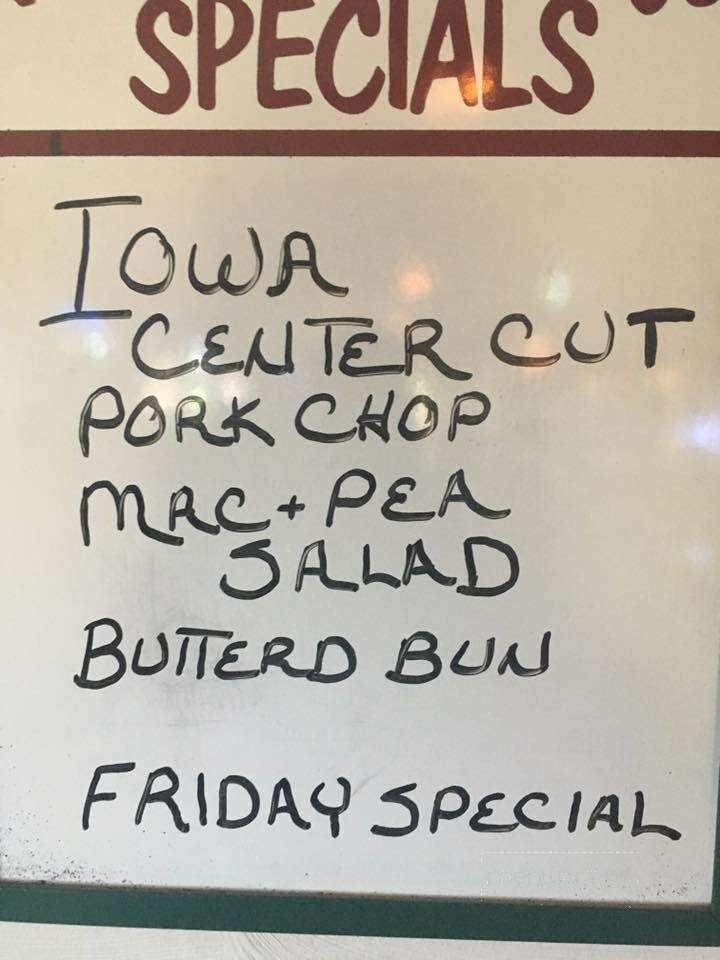 SPECIALS
IOWA
CENTER CUT
PORK CHOP
MAC + PEA
SALAD
BUTTERD BUN
FRIDAY SPECIAL